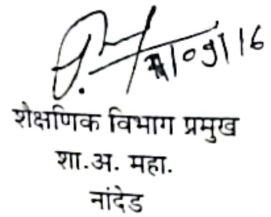 /09/16
शैक्षणिक विभाग प्रमुख
शा.अ. महा.
नांदेड